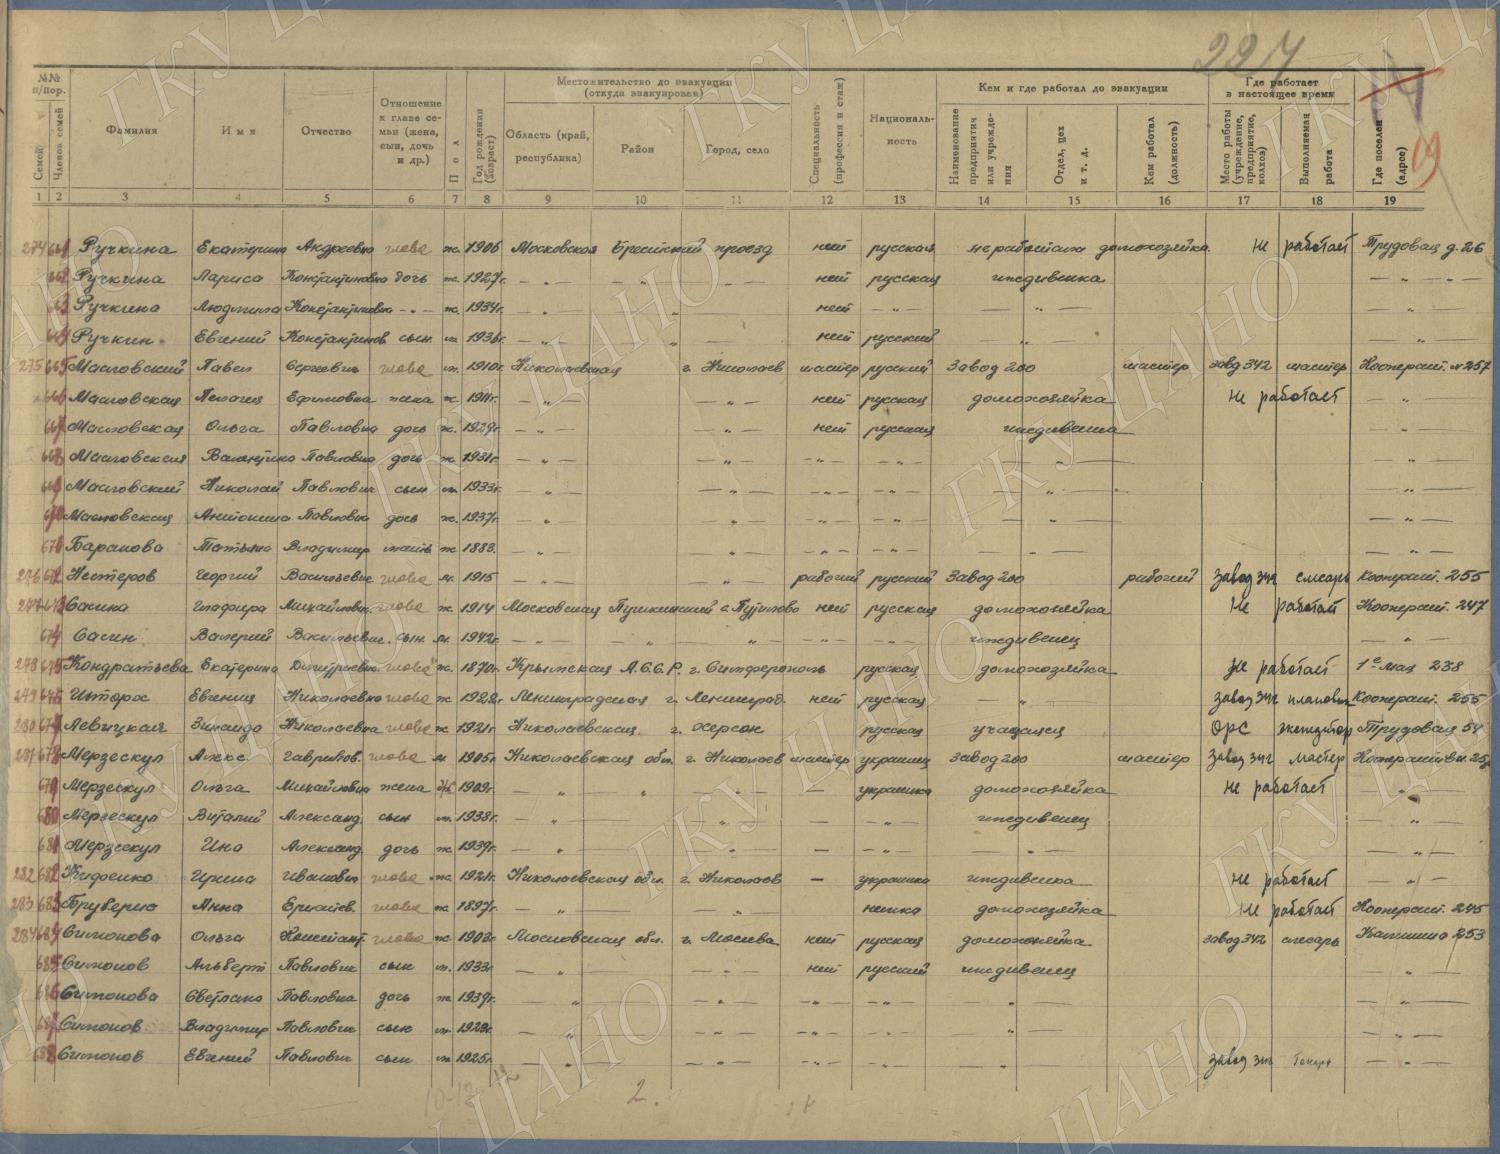 227
19
№№ п/пор. Местожительство до эвакуации (откуда эвакуирован) Кем и где работал до эвакуации Где работает в настоящее время
Семей Членов семей Фамилия Имя Отчество Отношение к главе семьи (жена, сын, дочь и др.) Пол Год рождения (возраст) Область (край, республика) Район Город, село Специальность (профессия и стаж) Националь-ность Наименование предприятия или учреждения Отдел, цех и т. д. Кем работал (должность) Место работы (учреждение, предприятие, колхоз) Выполняемая работа Где поселен (адрес)
1 2 3 4 5 6 7 8 9 10 11 12 13 14 15 16 17 18 19
274 661 Ручкина Екатерина Андреевна глава ж. 1906 Московская проезд нет русская не работала домохозяйка Не работает Трудовая д. 26
662 Ручкина Лариса Константиновна дочь ж. 1927г. — „ — „ — „ — нет русская иждивенка — „ —
663 Ручкина Людмила Константиновна — „ — ж. 1934г. — „ — „ нет — „ — — „ — — „ —
664 Ручкин Евгений Константинов. сын м. 1936г. — „ — „ нет русский — „ — — „ —
275 665 Масловский Павел Сергеевич глава м. 1910г. Николаевская г. Николаев мастер русский Завод 200 мастер завод 342 мастер Кооперат. № 257
666 Масловская Пелагея Ефимовна жена ж. 1911г. — „ — — „ — нет русская домохозяйка Не работает — „ —
667 Масловская Ольга Павловна дочь ж. 1929г. — „ — — „ — нет русская иждивенка — „ —
668 Масловская Валентина Павловна дочь ж. 1931г. — „ — — „ — — „ — — „ — — „ —
669 Масловский Николай Павлович сын м. 1933г. — „ — — „ — — „ — — „ — — „ — — „ —
670 Масловская Антонина Павловна дочь ж. 1937г. — „ — — „ — — „ — — „ — — „ — — „ —
671 Баранова Татьяна Владимир. мать ж. 1883. — „ — — „ — — „ — — „ — — „ — — „ —
276 672 Нестеров Георгий Васильевич глава м. 1915 — „ — — „ — рабочий русский Завод 200 рабочий Завод 342 слесарь Кооперат. 255
277 673 Сасина Глафира Михайловн. глава ж. 1914 Московская Пушкинский с. Путилово нет русская домохозяйка Не работает Кооперат. 247
674 Сасин Валерий Васильевич. сын. м. 1942г. — „ — „ „ — „ — — „ — иждивенец — „ —
278 675 Кондратьева Екатерина Дмитриевна глава ж. 1870г. Крымская А.С.С.Р. г. Симферополь русская домохозяйка Не работает 1ое мая 238
279 676 Шторх Евгения Николаевна глава ж. 1922г. Ленинградская г. Ленинград. нет русская — „ — Завод 342 плановик Кооперат. 255
280 677 Левицкая Зинаида Николаевна глава ж. 1921г. Николаевская. г. Херсон русская учащаяся ОРС экспедитор Трудовая
281 678 Мерзескул Алекс. Гаврилов. глава м 1905г. Николаевская обл. г. Николаев мастер украинец Завод 200 мастер Завод 342 мастер
679 Мерзескул Ольга Михайловна жена ж 1909г. — „ „ — „ — — украинка домохозяйка Не работает — „ —
680 Мерзескул Виталий Александ. сын м. 1938г. — „ — „ — — — „ — иждивенец — „ —
681 Мерзескул Ина Александ. дочь ж. 1939г. — „ — — „ — — — „ — — „ — — „ —
282 682 Ирина Иванович глава ж. 1921г. Николаевская обл. г. Николаев — украинка иждивенка Не работает — „ —
283 683 Бруверис Анна глава ж 1897г. — „ — — „ — немка домохозяйка Не работает Кооперат. 245
284 684 Симонова Ольга Констант. глава ж. 1903г. Московская обл. г. Москва нет русская домохозяйка завод 342 слесарь Калинина 253
685 Симонов Альберт Павлович сын м. 1933г. — „ — — „ — нет русский иждивенец — „ —
686 Симонова Светлана Павловна дочь ж. 1939г. — „ — — „ — — „ — — „ — „ — „ —
687 Симонов Владимир Павлович сын м. 1928г. — „ — — „ — — „ — — „ — „ — „ —
688 Симонов Евгений Павлович сын м 1925г. — „ — — „ — — „ — — „ — „ Завод 342 Токарь — „ —
2.
ГКУ ЦАНО